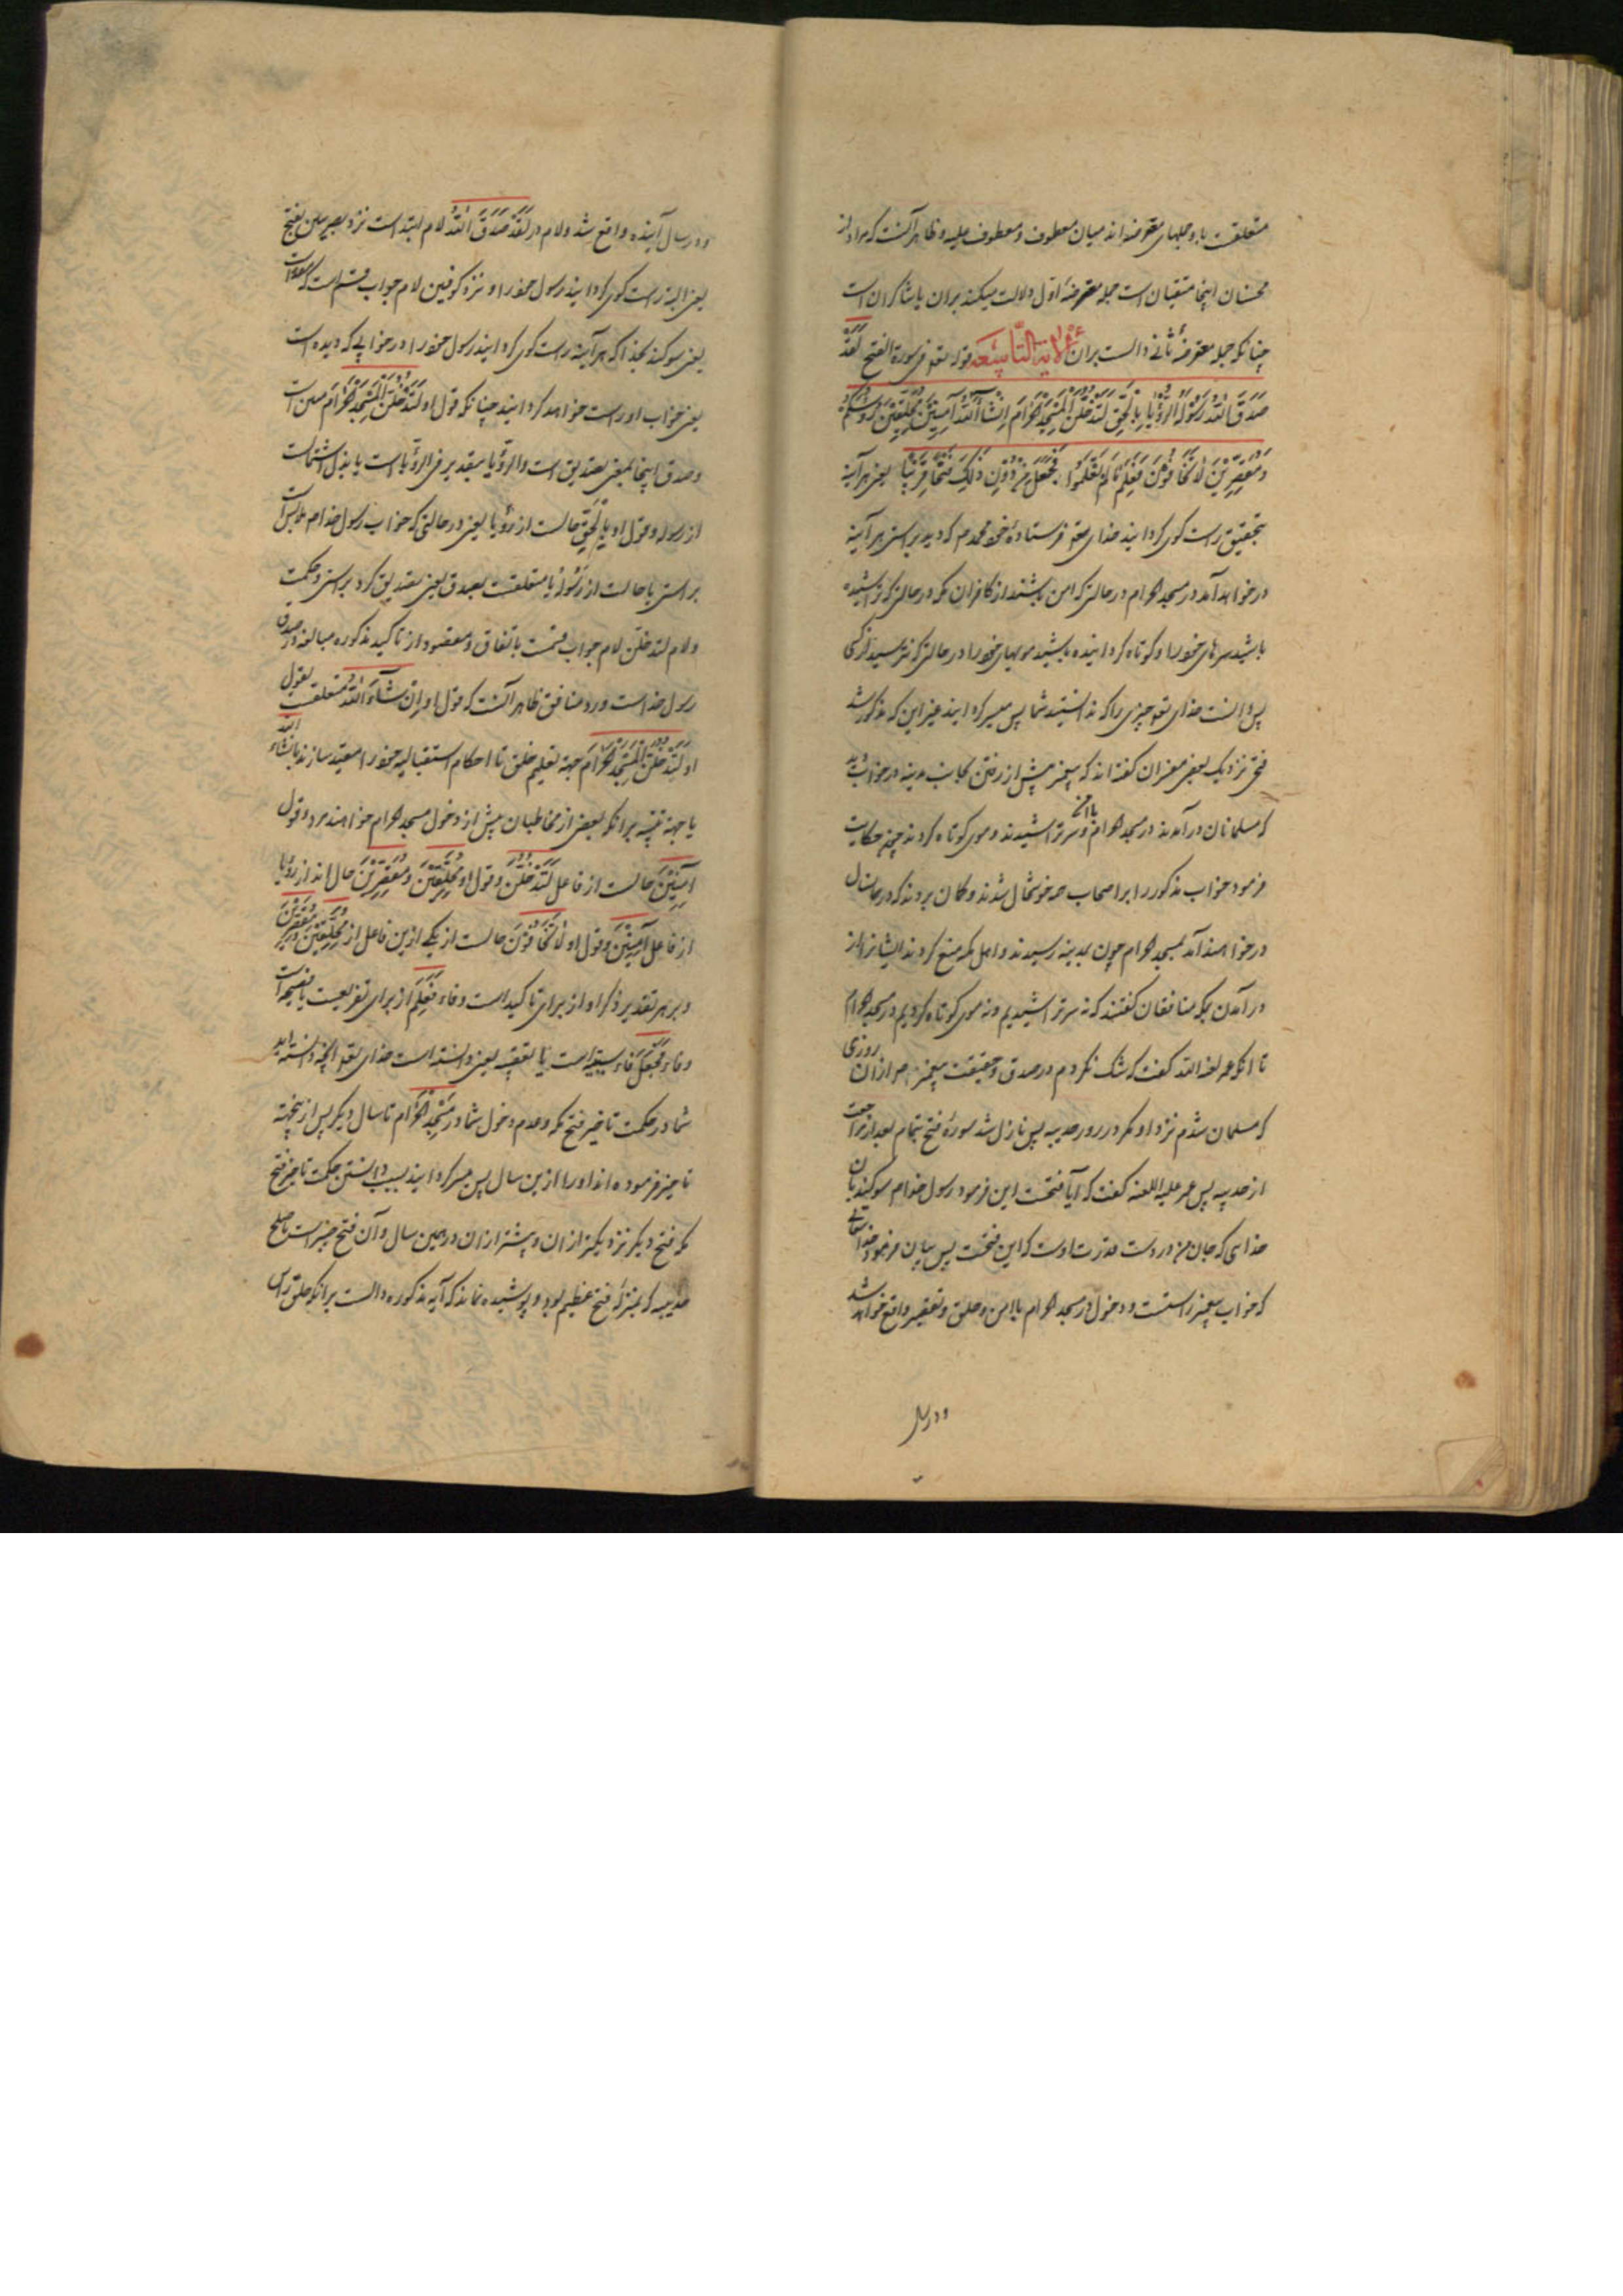 متعلقست باو و جملهای معترضه اند میان معطوف و معطوف علیه و ظاهر آنست که مراد از
محسنان اینجا متقیان است جمله معترضهٔ اول دلالت میکند بران یا شاکران است
چنانکه جمله معترضهٔ ثانی دالست بران الآیة التاسعة قوله تعالی فی سورة الفتح لَقَدْ
صَدَقَ اللّٰهُ رَسُوْلَهُ الرُّؤْیَا بِالْحَقِّ لَتَدْخُلُنَّ الْمَسْجِدَ الْحَرَامَ اِنْ شَآءَ اللّٰهُ آمِنِیْنَ مُحَلِّقِیْنَ رُءُوْسَکُمْ
وَمُقَصِّرِیْنَ لَا تَخَافُوْنَ فَعَلِمَ مَا لَمْ تَعْلَمُوْا فَجَعَلَ مِنْ دُوْنِ ذٰلِکَ فَتْحًا قَرِیْبًا یعنی هر آینه
بتحقیق راست کوی کردانید خدای تعالی فرستادهٔ خود محمد را م که دید براستی هر آینه
در خواهد آمد در مسجد الحرام در حالتی که امن باشید از کافران مکه در حالتی که تراشیده
باشید سرهای خود را و کوتاه کردانیده باشید مویهای خود را در حالتی که نترسید از کسی
پس دانست خدای تعالی چیزی را که ندانستید شما پس میسر کردانید غیر این که مذکور شد
فتحی نزدیک بعضی مفسران کفته اند که پیغمبر پیش از رفتن بجانب مدینه در خواب دید
که مسلمانان درآمدند در مسجد الحرام با امن و سر تراشیدند و موی کوتاه کردند چون حکایت
فرمود خواب مذکور را بر اصحاب همه خوشحال شدند و کمان بردند که در همان سال
در خواهند آمد بمسجد الحرام چون بمدینه رسیدند و اهل مکه منع کردند ایشانرا از
در آمدن بمکه منافقان کفتند که نه سر تراشیدیم و نه موی کوتاه کردیم در مسجد الحرام
تا انکه عمر لعنه الله کفت که شک نکردم در صدق و حقیقت پیغمبر م از ان روزی
که مسلمان شدم نزد او مکر در روز حدیبیه پس نازل شد سورهٔ فتح بتمام بعد از مراجعت
از حدیبیه پس عمر علیه اللعنه کفت که آیا فتحست این فرمود رسول خدا م سوکند بان
خدایی که جان من در دست قدرت اوست که این فتحست پس بیان فرمود خدا تعالی
که خواب پیغمبر راستست و دخول در مسجد الحرام با امن و حلق و تقصیر واقع خواهد شد
و در سال
و در سال آینده واقع شد و لام در لَقَدْ صَدَقَ اللّٰهُ لام ابتداست نزد بصریین بفتح
یعنی البته راست کوی کردانید رسول خود را و نزد کوفیین لام جواب قسم است که مقدر است
یعنی سوکند بخدا که هر آینه راست کوی کردانید رسول خود را در خوابی که دیده است
یعنی خواب او راست خواهد کردانید چنانکه قول او لَتَدْخُلُنَّ الْمَسْجِدَ الْحَرَامَ مبین است
و صدق اینجا بمعنی تصدیق است و الرؤیا بتقدیر فی الرؤیا است یا بدل اشتمالست
از رسوله و قول او بِالْحَقِّ حالست از رؤیا یعنی در حالتی که خواب رسول خدا م ملابس است
براستی یا حالست از رَسُوْلَهُ یا متعلقست بصدق یعنی تصدیق کرد براستی و حکمت
و لام لتدخلن لام جواب قسمست باتفاق و مقصود از تاکید مذکوره مبالغه در صدق
رسول خداست و رد منافق ظاهر آنست که قول او اِنْ شَآءَ اللّٰهُ متعلقست بقول
او لَتَدْخُلُنَّ الْمَسْجِدَ الْحَرَامَ جهة تعلیم خلق تا احکام استقبالیه خود را مقید سازند بانشاء الله
یا جهة تنبیه برانکه بعضی از مخاطبان پیش از دخول مسجد الحرام خواهند مرد و قول
آمِنِیْنَ حالست از فاعل لَتَدْخُلُنَّ و قول او مُحَلِّقِیْنَ وَمُقَصِّرِیْنَ حال اند از رؤیا
از فاعل آمِنِیْنَ و قول او لَا تَخَافُوْنَ حالست از یکی ازین فاعل از مُحَلِّقِیْنَ و مُقَصِّرِیْنَ
و بر هر تقدیر ذکر او از برای تاکید است و فاء فَعَلِمَ از برای تفریعست یا فصیحه است
و فاء فَجَعَلَ فاء سببیه است یا تعقیب یعنی دانسته است خدای تعالی انچه ندانسته اید
شما در حکمت تاخیر فتح مکه و عدم دخول شما در مَسْجِدِ الْحَرَام تا سال دیکر پس ازینجهة
تاخیر فرموده اند او را ازین سال پس میسر کردانید بسبب دانستن حکمت تاخیر فتح
مکه فتح دیکر نزدیکتر از ان و پیشتر از ان در همین سال و آن فتح خیبر است یا صلح
حدیبیه که بمنزلهٔ فتح عظیم بود و پوشیده نماند که آیهٔ مذکوره دالست برانکه حلق راس